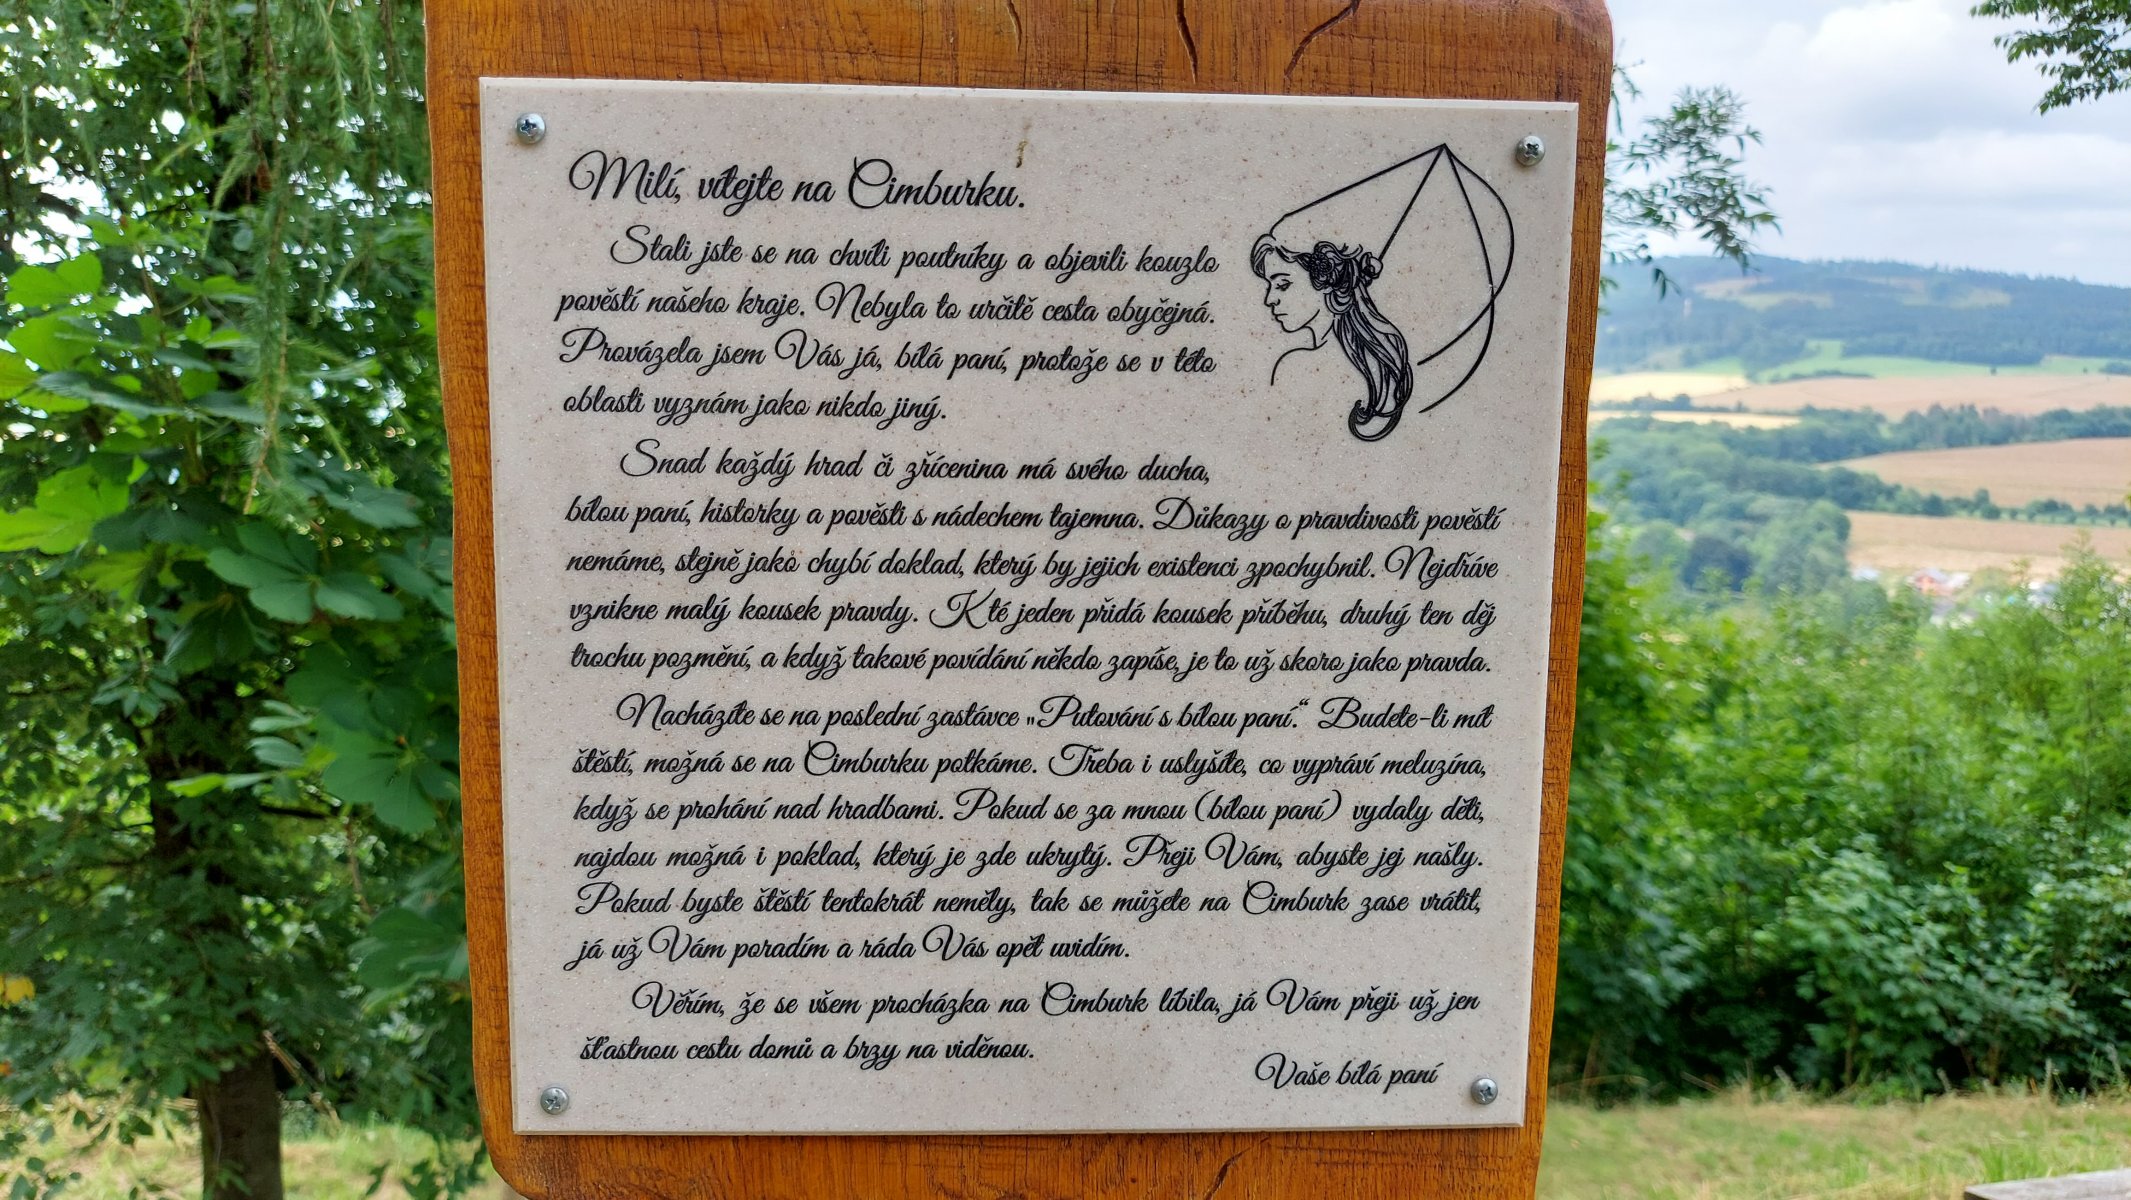 Milí, vítejte na Cimburku.
Stali jste se na chvíli poutníky a objevili kouzlo
pověstí našeho kraje. Nebyla to určitě cesta obyčejná.
Provázela jsem Vás já, bílá paní, protože se v této
oblasti vyznám jako nikdo jiný.
Snad každý hrad či zřícenina má svého ducha,
bílou paní, historky a pověsti s nádechem tajemna. Důkazy o pravdivosti pověstí
nemáme, stejně jako chybí doklad, který by jejich existenci zpochybnil. Nejdříve
vznikne malý kousek pravdy. K té jeden přidá kousek příběhu, druhý ten děj
trochu pozmění, a když takové povídání někdo zapíše, je to už skoro jako pravda.
Nacházíte se na poslední zastávce „Putování s bílou paní.“ Budete-li mít
štěstí, možná se na Cimburku potkáme. Třeba i uslyšíte, co vypráví meluzína,
když se prohání nad hradbami. Pokud se za mnou (bílou paní) vydaly děti,
najdou možná i poklad, který je zde ukrytý. Přeji Vám, abyste jej našly.
Pokud byste štěstí tentokrát neměly, tak se můžete na Cimburk zase vrátit,
já už Vám poradím a ráda Vás opět uvidím.
Věřím, že se všem procházka na Cimburk líbila, já Vám přeji už jen
šťastnou cestu domů a brzy na viděnou.
Vaše bílá paní